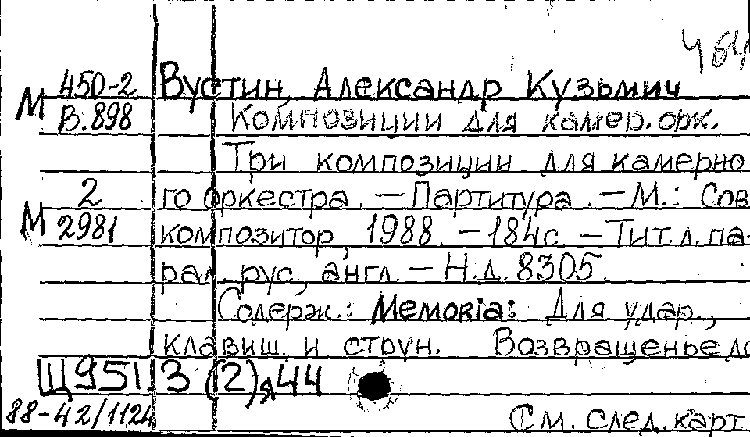 450-2 Вустин Александр Кузьмич
М В.898 Композиции для камер. орк.
Три композиции для камерно
2 го оркестра. — Партитура. — М.: Сов
М 2981 композитор, 1988. — 184с. — Тит. л. па-
рал. рус., англ. — Н.д. 8305.
Содерж.: Memoria: Для удар.,
клавиш. и струн. Возвращенье до
Щ951.3(2)я44
88-42/1124
См. след. карт